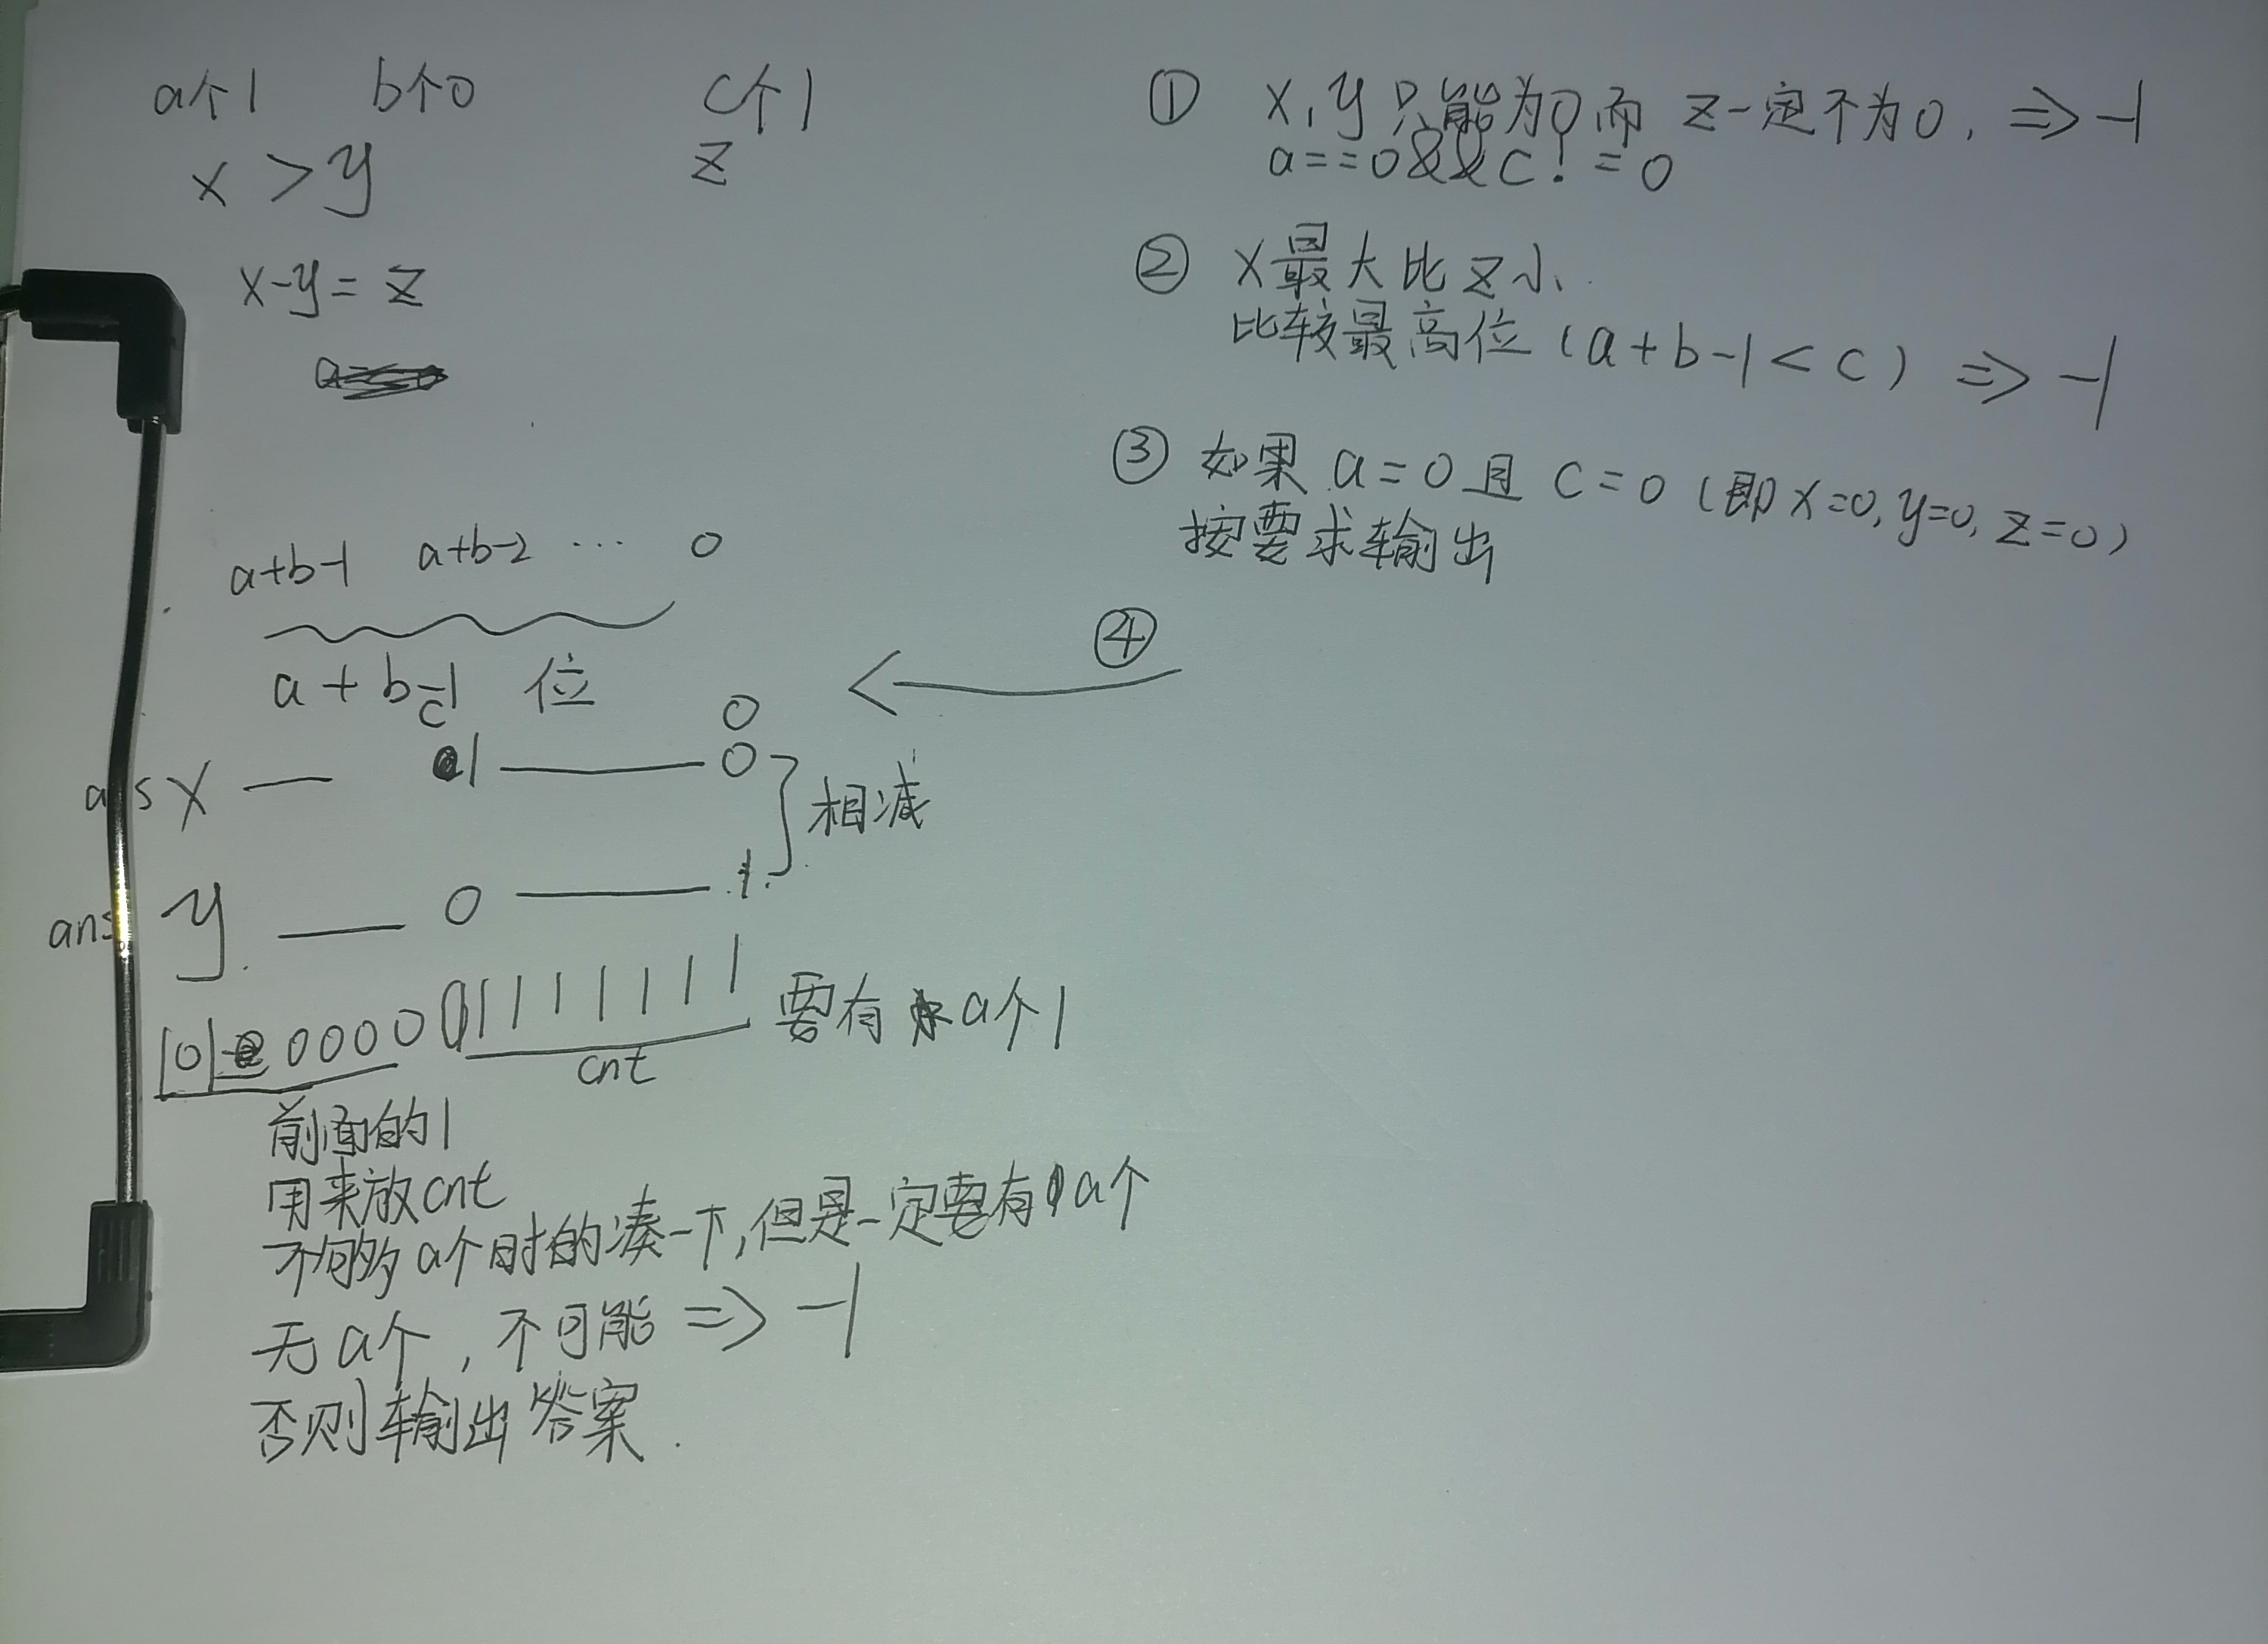 a个1 b个0 c个1
x > y z
x-y = z
① x, y 只能为0而 z一定不为0, ⇒ -1
a==0&&c!=0
② x最大比z小.
比较最高位 (a+b-1<c) ⇒ -1
③ 如果 a=0 且 c=0 (即x=0, y=0, z=0)
按要求输出
④
a+b-1 a+b-2 ... 0
a+b-1 位
c 0
ans x — 1 —— 0
相减
ans y — 0 —— 1
1 1 1 1 1 1 1 要有a个1
cnt
前面的1
用来放cnt
不够a个时的凑一下,但是一定要有a个
无a个, 不可能 ⇒ -1
否则输出答案.